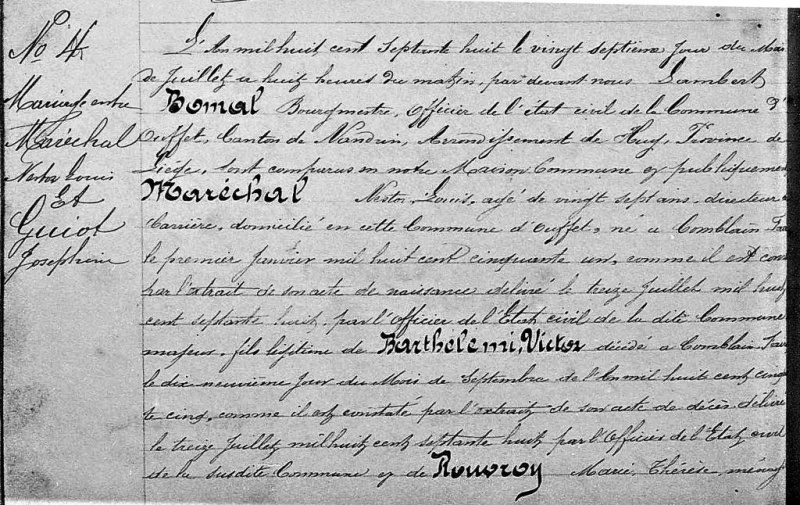 No 4
Mariage entre
Maréchal
Nestor Louis
Et
Guiot
Josephine
L'An mil huit cent septante huit le vingt septième jour du Mois
de Juillet a huit heures du matin, par devant nous Lambert
Bomal Bourgmestre, Officier de l'état civil de la Commune d'
Ouffet, Canton de Nandrin, Arrondissement de Huy, Province de
Liége, sont comparus en notre Maison Commune et publiquement
Maréchal Nestor, Louis, agé de vingt sept ans, directeur
Carrière, domicilié en cette Commune d'Ouffet, né a Comblain
le premier Janvier mil huit cent cinquante un, comme il est
par l'extrait de son acte de naissance délivré le treize Juillet mil huit
cent septante huit, par l'Officier de l'Etat civil de la dite Commune
majeur, fils légitime de Barthelemi, Victor décédé a Comblain
le dix neuvième jour du Mois de Septembre de l'An mil huit cent cinq
te cinq, comme il est constaté par l'extrait de son acte de décès délivré
le treize Juillet mil huit cent septante huit par l'Officier de l'Etat civil
de la susdite Commune et de Rouvroy Marie, Thérèse, ménag